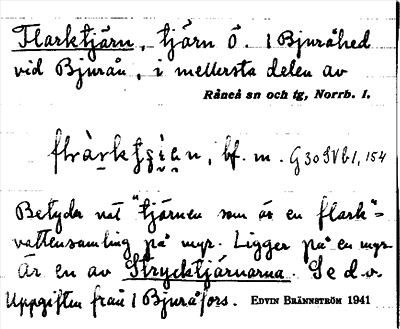 Flarktjärn, tjärn Ö. 1 Bjuråhed
vid Bjurån, i mellersta delen av
Råneå sn och tg, Norrb. l.
bf. m. G 30 SV b1, 154
Betyder väl "tjärnen som är en flark" =
vattensamling på myr. Ligger på en myr
Är en av Strycktjärnarna. Se d.o.
Uppgiften från 1 Bjuråfors. EDVIN BRÄNNSTRÖM 1941